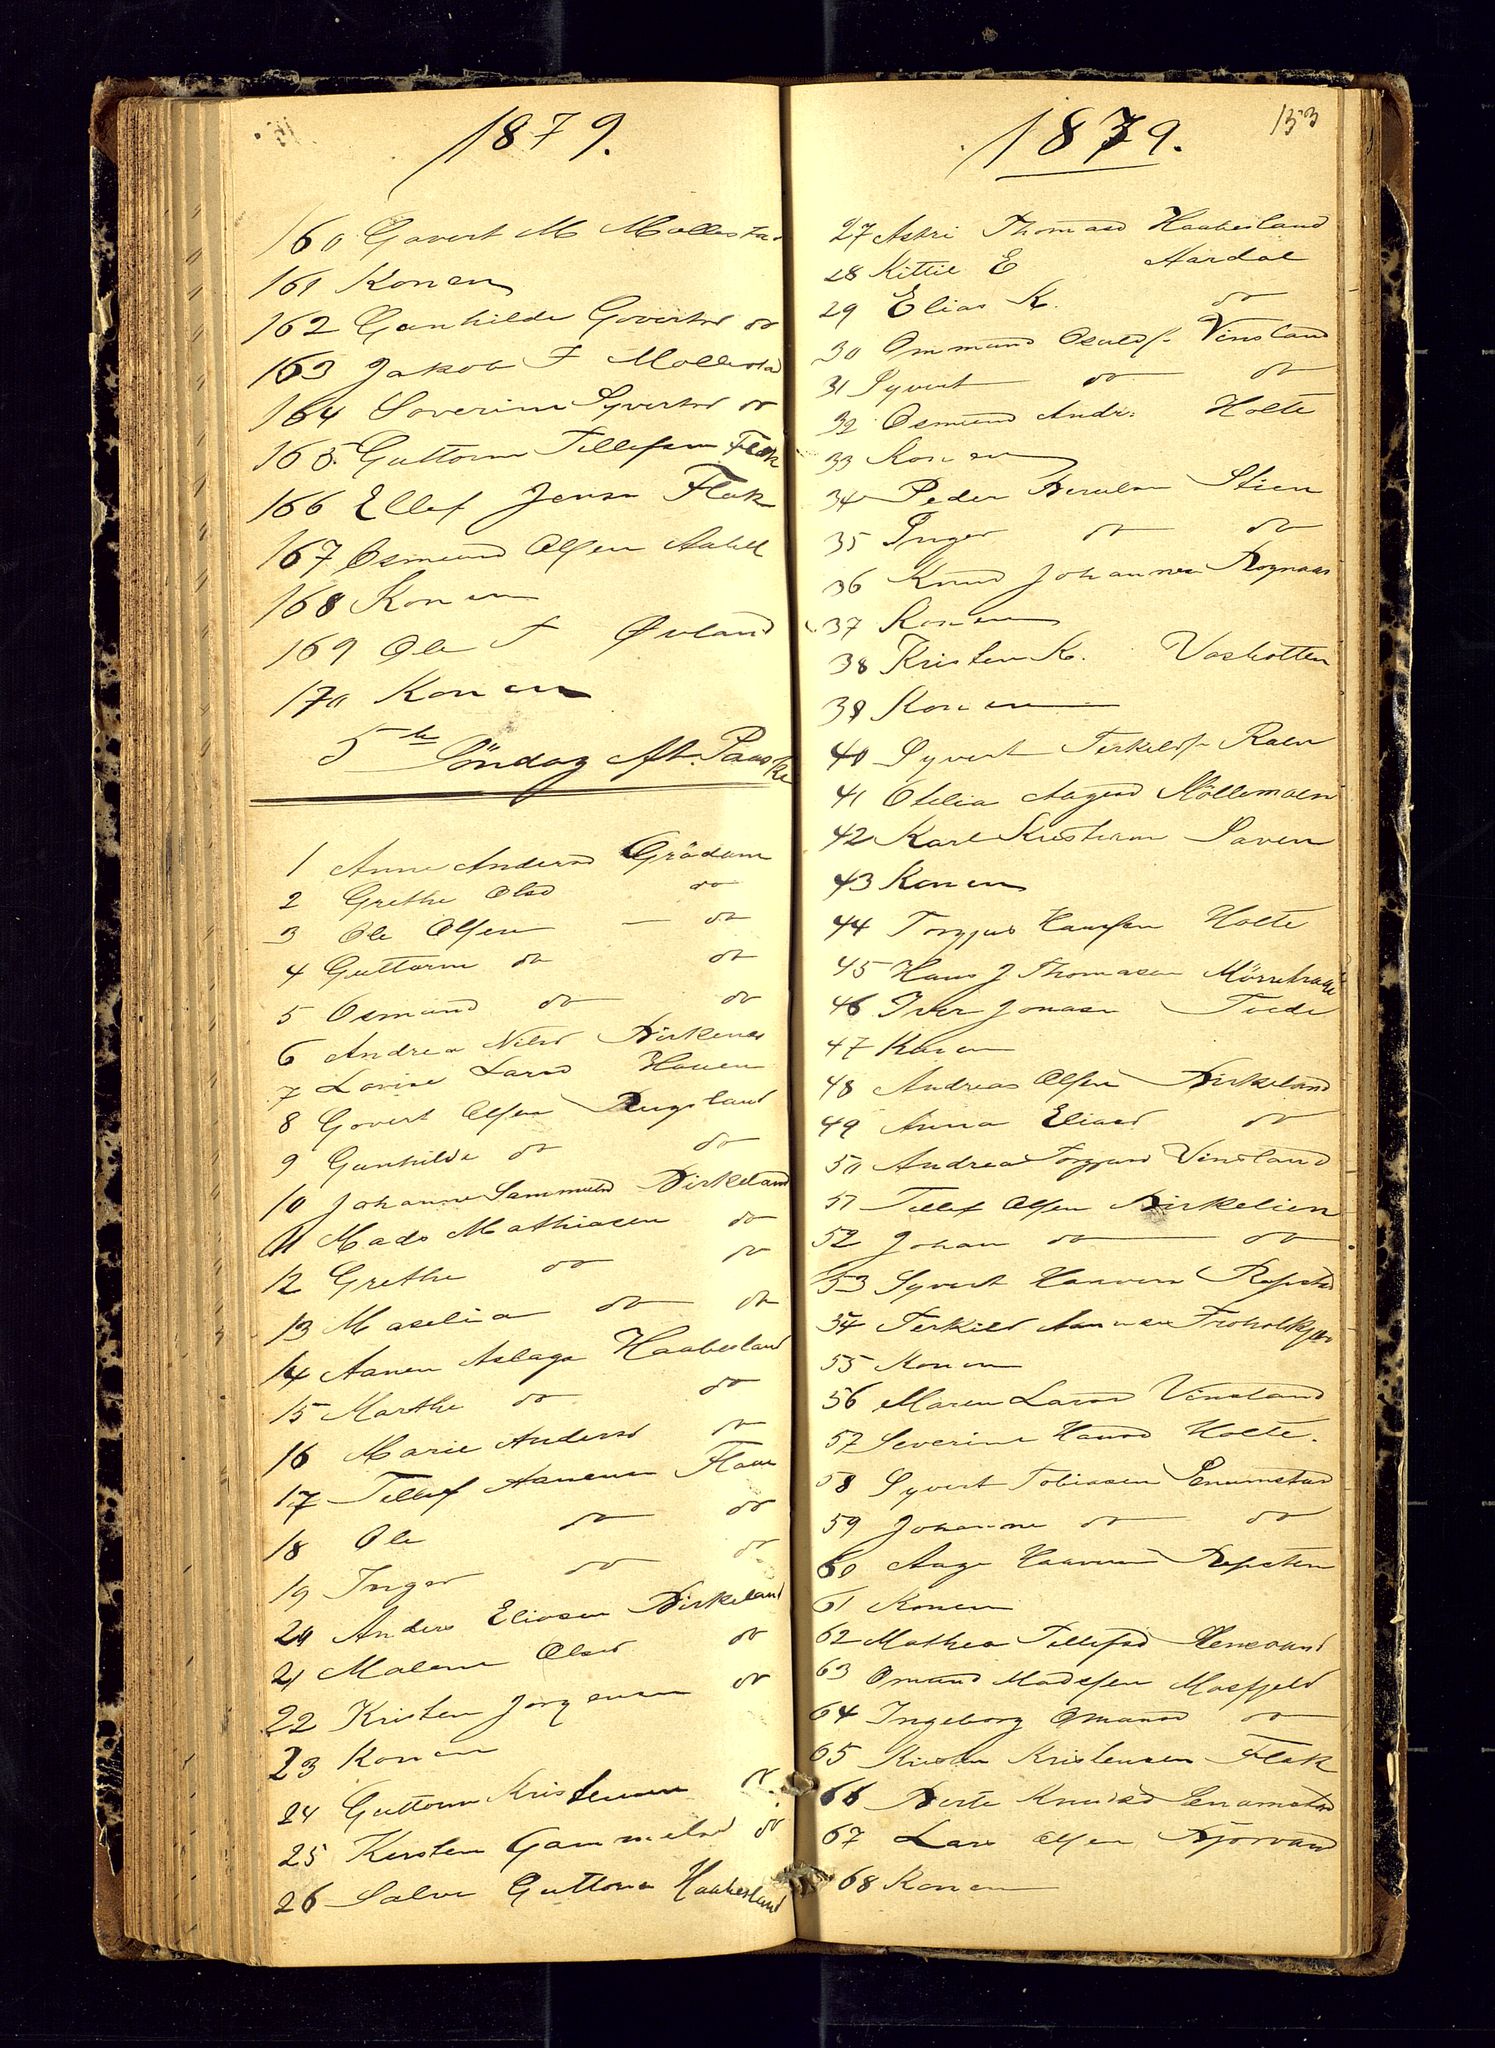 1879.
160 Govert M Mollestad
161 Konen
162 Gunhilde Govertsd do
163 Jakob F Mollestad
164 Severine Syvertsd do
165 Guttorm Tellefsen Flak
166 Ellef Jensen Flak
167 Osmund Olsen
168 Konen
169 Ole F Øvland
170 Konen
5te Söndag Aft. Paaske
1 Anne Andersd Grödum
2 Grethe Olsd do
3 Ole Olsen — do
4 Guttorm do do
5 Osmund do do
6 Andrea Nilsd Birkenes
7 Lovise Larsd Hauen
8 Govert Olsen Rugsland
9 Gunhilde do do
10 Johanne Sammuelsd Birkeland
11 Mads Mathiasen do
12 Grethe do do
13 Maselia do do
14 Aanen Aslags Haabesland
15 Marthe do do
16 Marie Andersd do
17 Tellef Aanensen Flaa
18 Ole do do
19 Inger do do
20 Anders Eliasen Birkeland
21 Malene Olsd do
22 Kristen Jorgensen do
23 Konen
24 Guttorm Kristensen do
25 Kirsten Gammelsd do
26 Salve Guttorms Haabesland
1879.
133
27 Askri Thomasd Haabesland
28 Kittil E Aardal
29 Elias K. do
30 Ommund Osulds Vinsland
31 Syvert do do
32 Osmund Andr: Holte
33 Konen
34 Peder Berulsen Stien
35 Inger do do
36 Knud Johannesen Rognaas
37 Konen
38 Kristen K. Vashotten
39 Konen
40 Syvert Terkelds Raen
41 Otilia Aagesd Möllemoen
42 Karl Kristian Saven
43 Konen
44 Torgjus Hansen Holte
45 Hans J Thomasen
46 Iver Jonasen Tvede
47 Konen
48 Andreas Olsen Birkeland
49 Anna Eliasd do
50 Andrea Torgjusd Vinsland
51 Tellef Olsen Birkelien
52 Johan do do
53 Syvert Haavers Repstad
54 Terkild Aanensen
55 Konen
56 Maren Larsd Vinsland
57 Severine Hansd Holte.
58 Syvert Tobiasen Senumstad
59 Johanne do do
60 Aage Haavers Repsten
61 Konen
62 Mathea Tellefsd
63 Omund Madssen Mosfjeld
64 Ingeborg Omunsd do
65 Kirsten Kristensen Flak
66 Berte Knudsd Senumstad
67 Lars Olsen Bjorvand
68 Konen